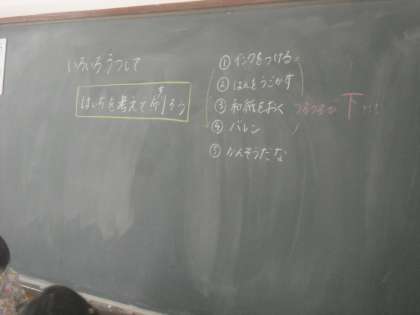 いろいろうつして
ばしょを考えて刷ろう
す
①インクをつける
②はんをうごかす
③和紙をおく つるつるが下…!
④バレン
⑤かんそうだな